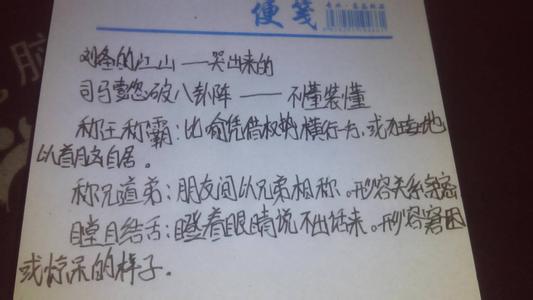 便笺
刘备的江山——哭出来的
司马懿破八卦阵——不懂装懂
称王称霸：比喻凭借权势横行一方，或狂妄地
以首脑自居。
称兄道弟：朋友间以兄弟相称。形容关系亲密
瞠目结舌：瞪着眼睛说不出话来。形容窘困
或惊呆的样子。